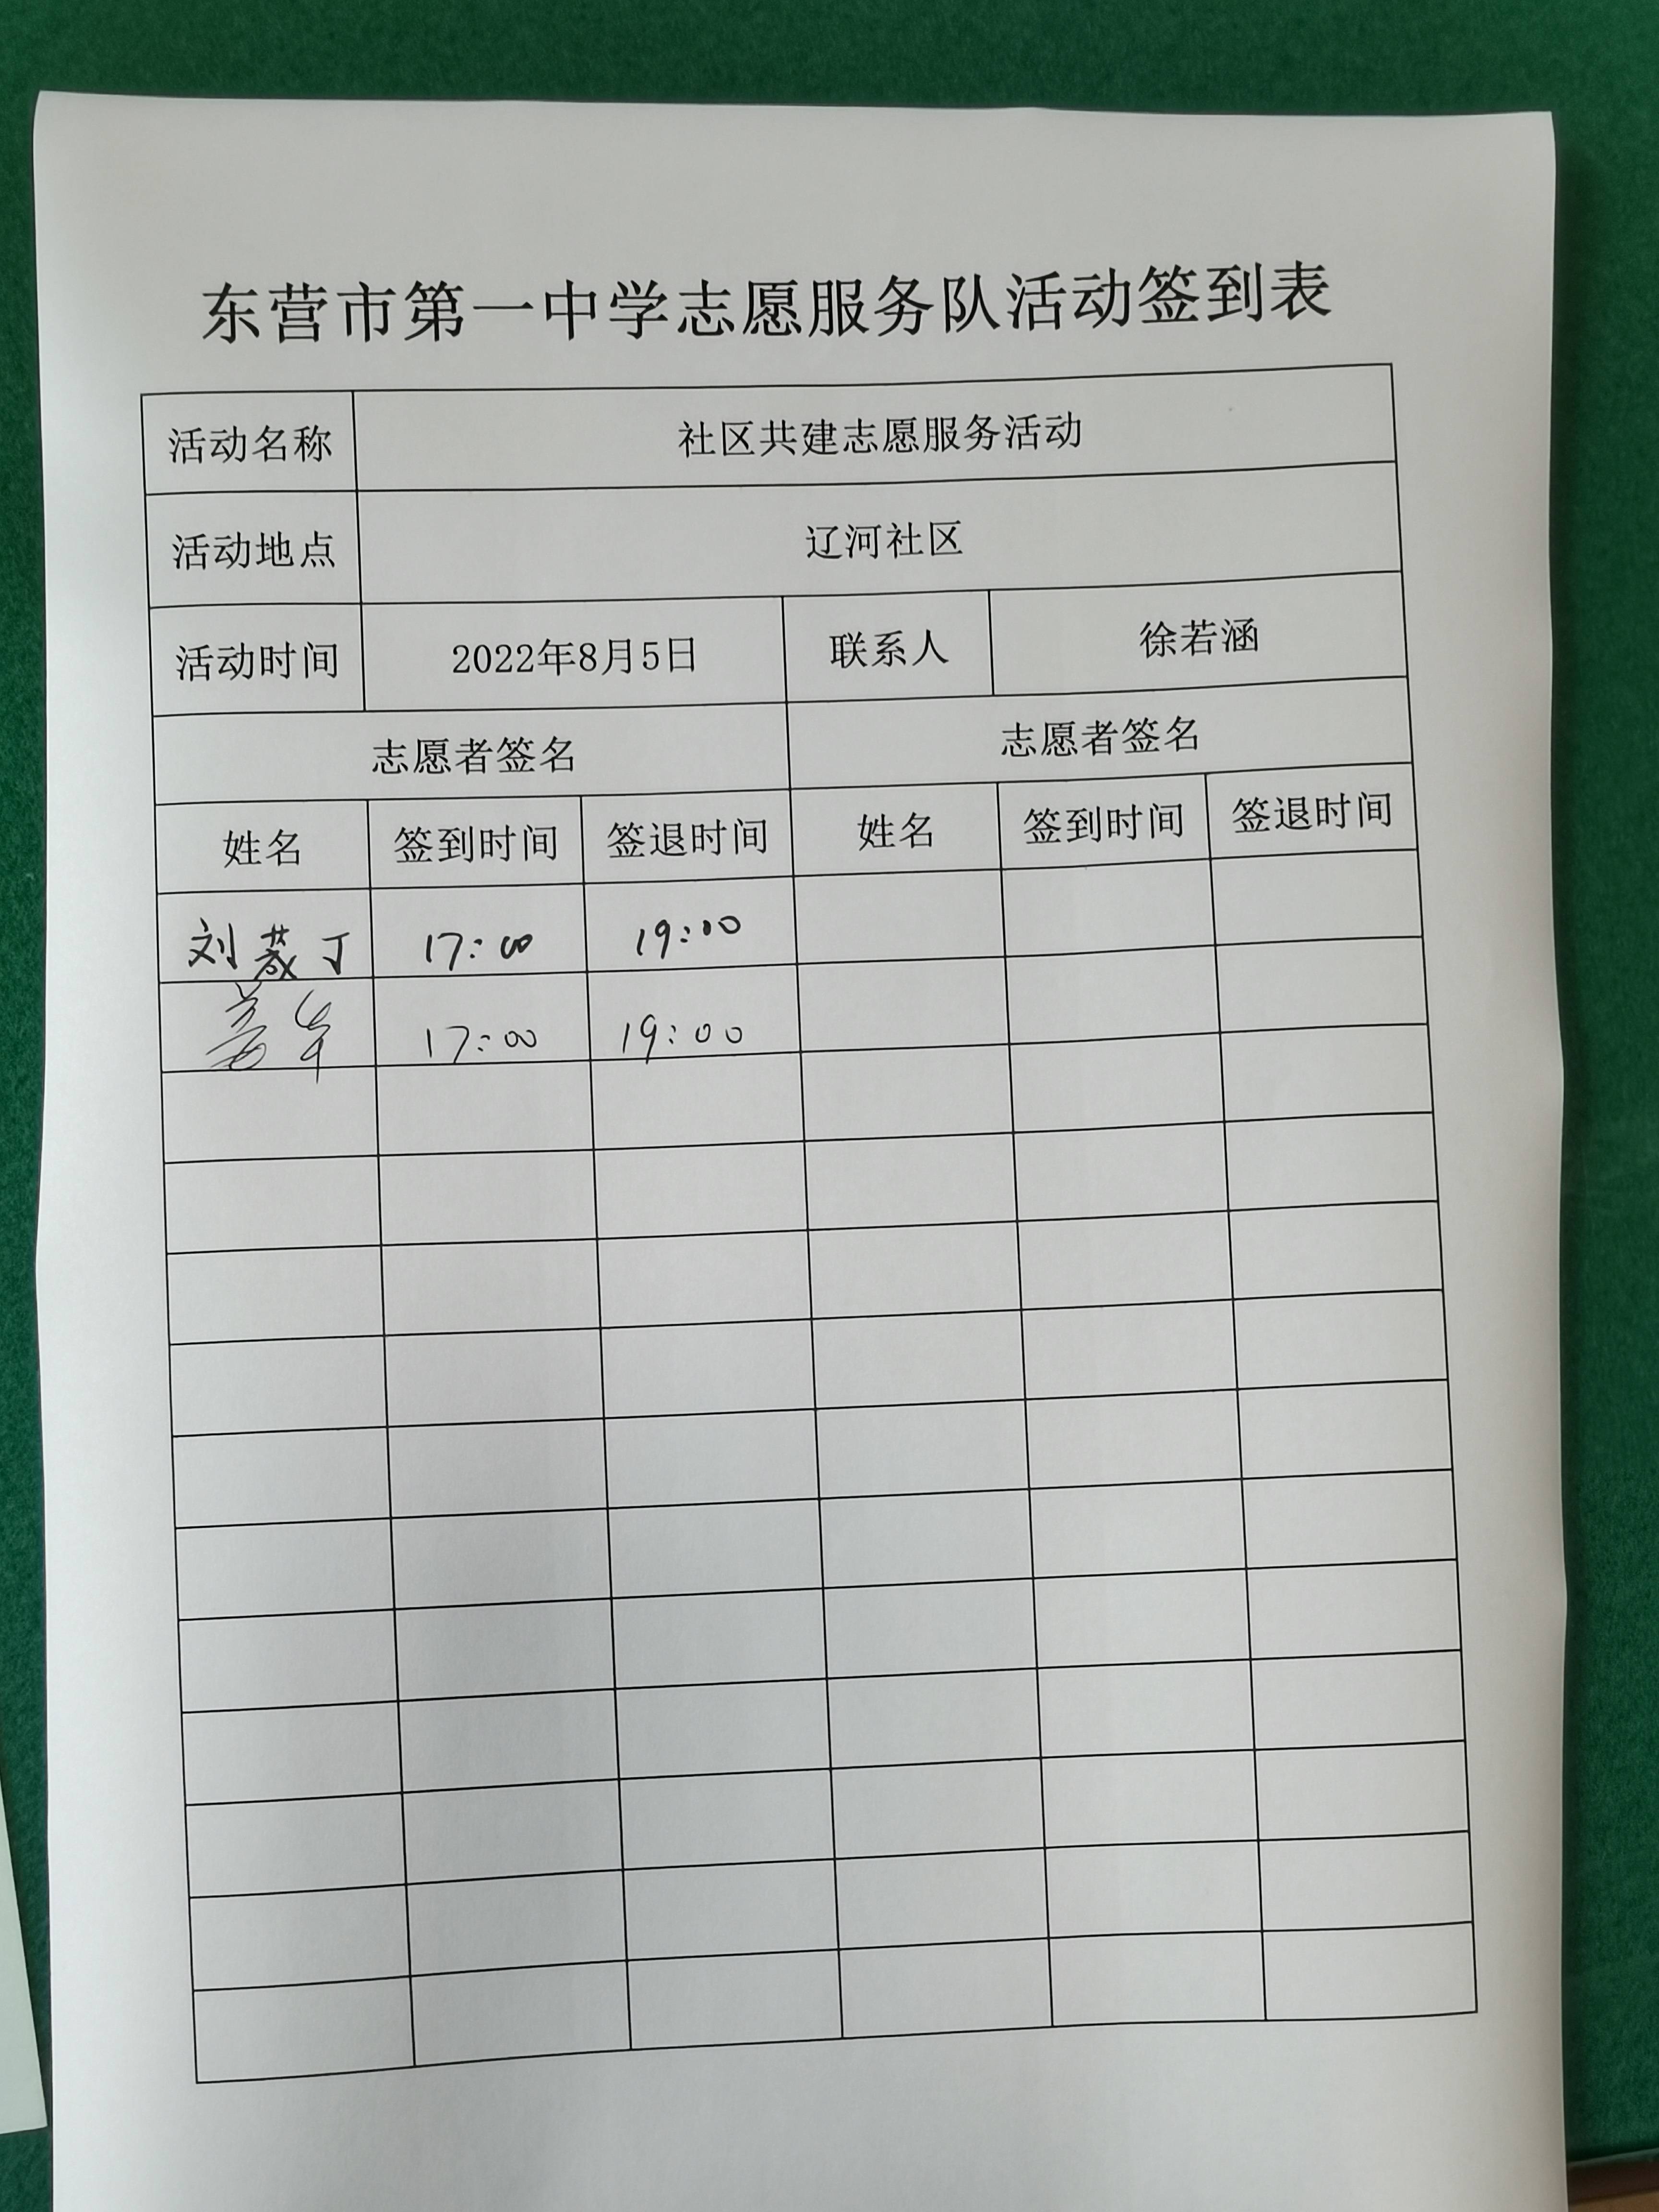 东营市第一中学志愿服务队活动签到表
活动名称 社区共建志愿服务活动
活动地点 辽河社区
活动时间 2022年8月5日 联系人 徐若涵
志愿者签名 志愿者签名
姓名 签到时间 签退时间 姓名 签到时间 签退时间
刘 丁 17:00 19:00
姜 17:00 19:00